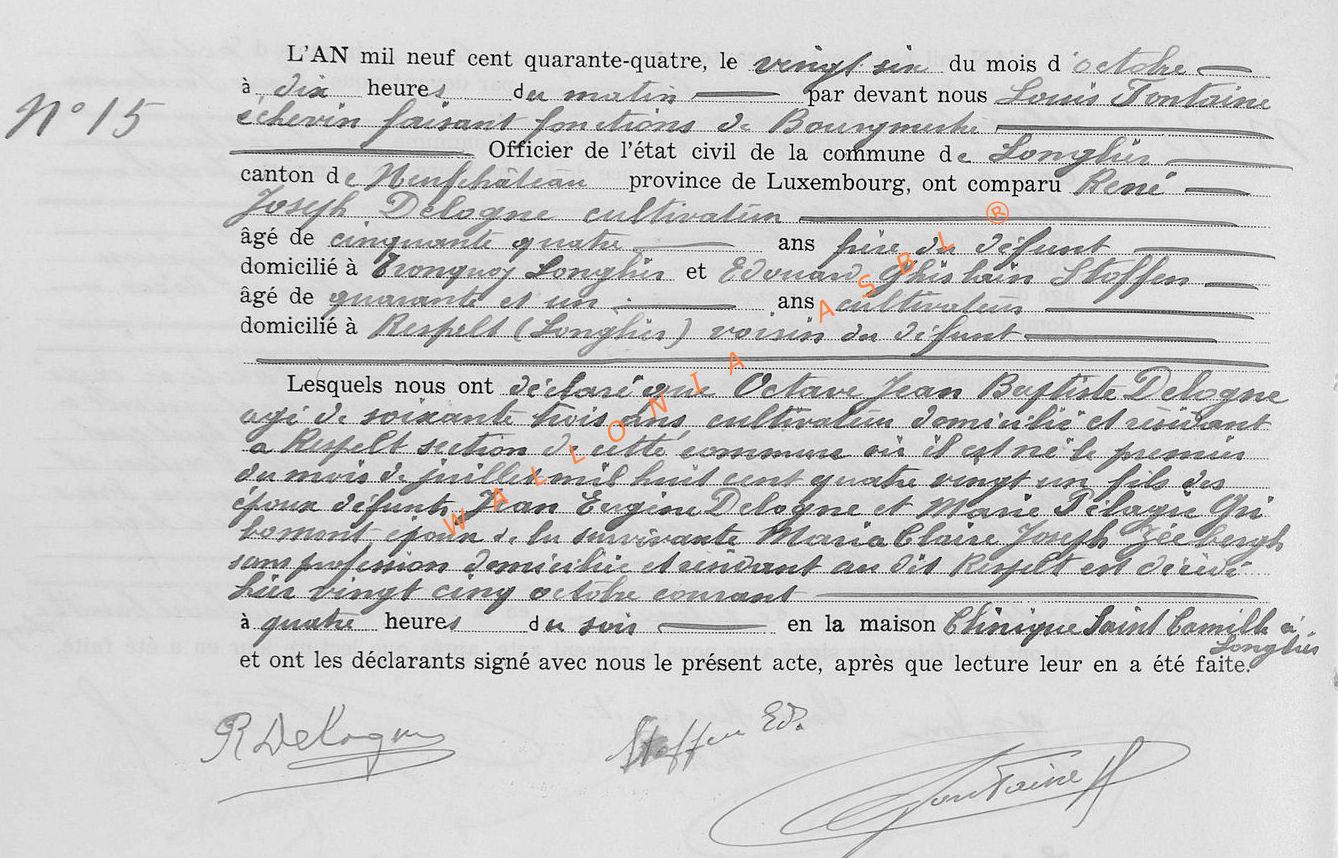 L'AN mil neuf cent quarante-quatre, le vingt six du mois d'octobre
N° 15
à dix heures du matin par devant nous Louis Fontaine
échevin faisant fonctions de Bourgmestre
Officier de l'état civil de la commune de Longlier
canton de Neufchâteau province de Luxembourg, ont comparu René
Joseph Delogne cultivateur
âgé de cinquante quatre ans frère du défunt
domicilié à Tronquoy Longlier et Edouard Ghislain Stoffen
âgé de quarante et un ans cultivateur
domicilié à Respelt (Longlier) voisin du défunt
Lesquels nous ont déclaré que Octave Jean Baptiste Delogne
agé de soixante trois ans cultivateur domicilié et résidant
à Respelt section de cette commune où il est né le premier
du mois de juillet mil huit cent quatre vingt un fils des
époux défunts Jean Eugène Delogne et Marie Pélagie Gri
bomont époux de la survivante Maria Claire Joseph
sans profession domiciliée et résidant au dit Respelt est décédé
hier vingt cinq octobre courant
à quatre heures du soir en la maison Clinique Saint Camille à
Longlier
et ont les déclarants signé avec nous le présent acte, après que lecture leur en a été faite.
R Delogne
Stoffen Ed.
Fontaine
WALLONIA ASBL ®